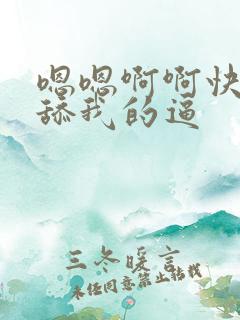 嗯嗯啊啊快
舔我的逼
三冬暖言
未经同意禁止转载